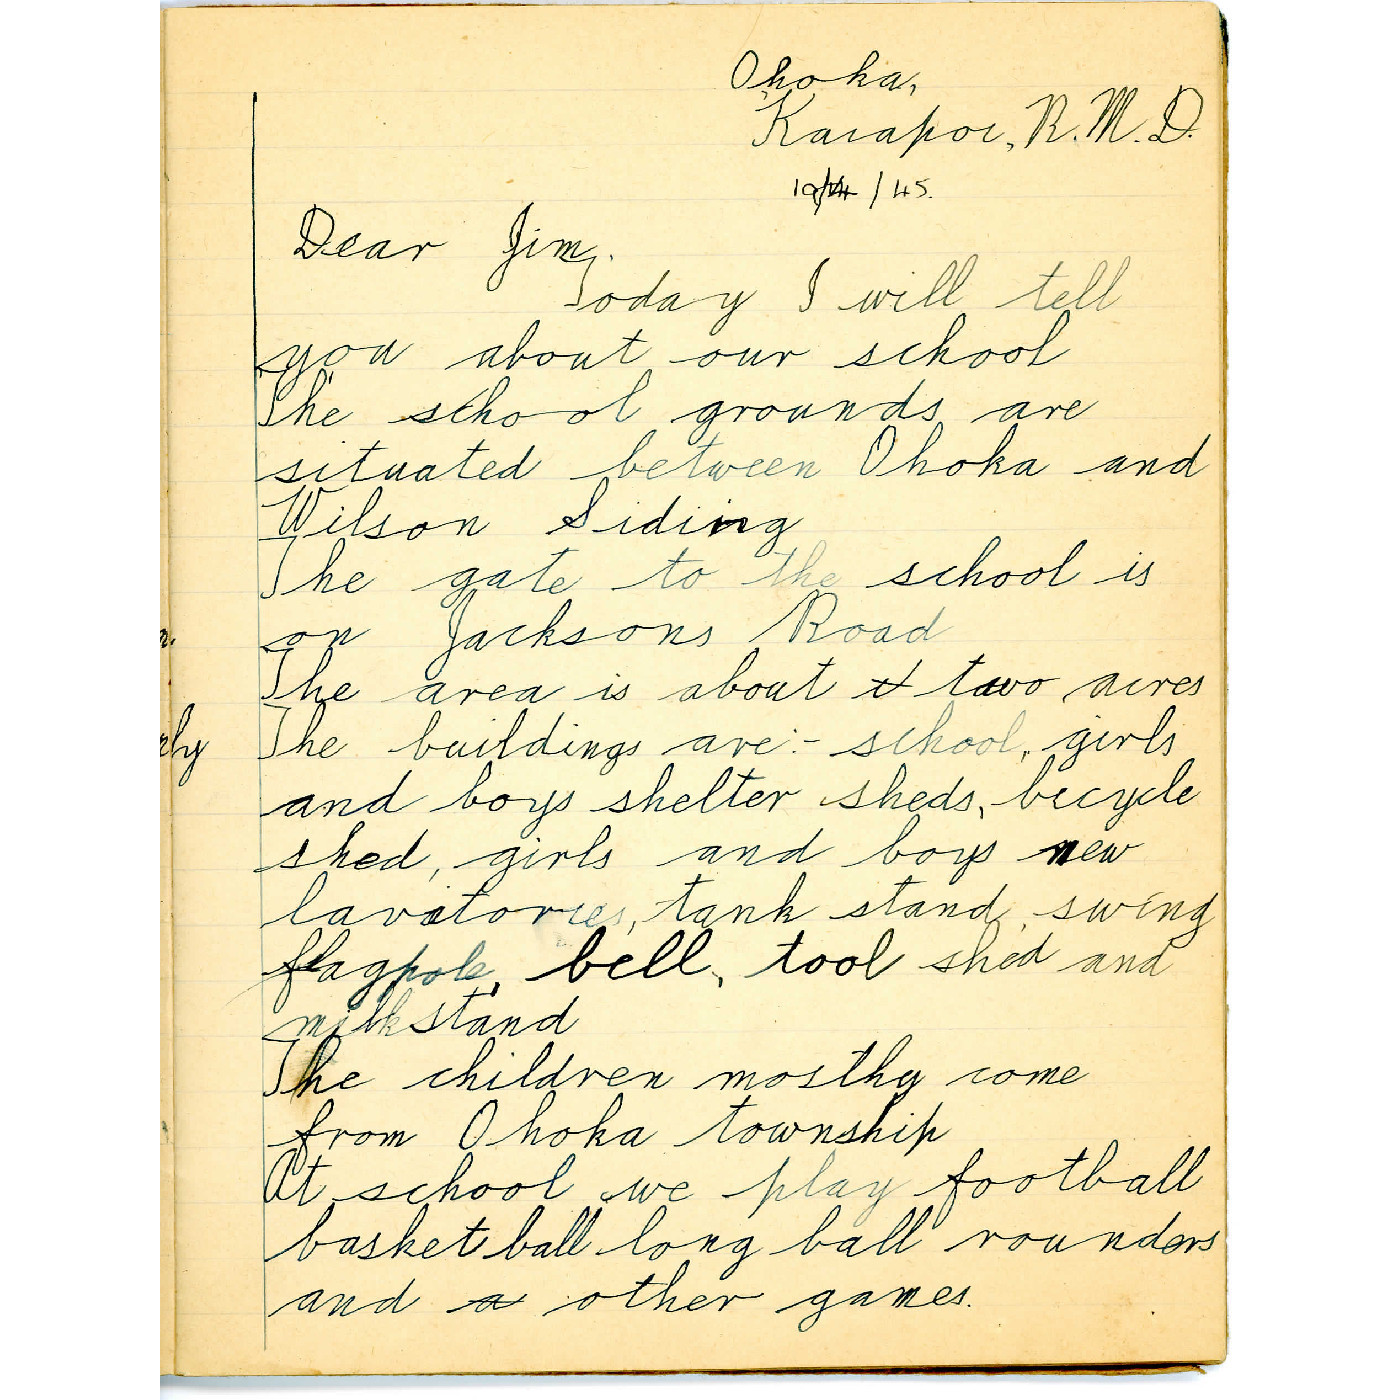 Ohoka,
Kaiapoi, R.M.D.
/ 45.
Dear Jim,
Today I will tell
you about our school
The school grounds are
situated between Ohoka and
Wilson Siding
The gate to the school is
on Jacksons Road
The area is about two acres
The buildings are:- school, girls
and boys shelter sheds, bicycle
shed, girls and boys new
lavatories, tank stand, swing
flagpole, bell, tool shed and
milkstand
The children mostly come
from Ohoka township
At school we play football
basket ball long ball rounders
and other games.